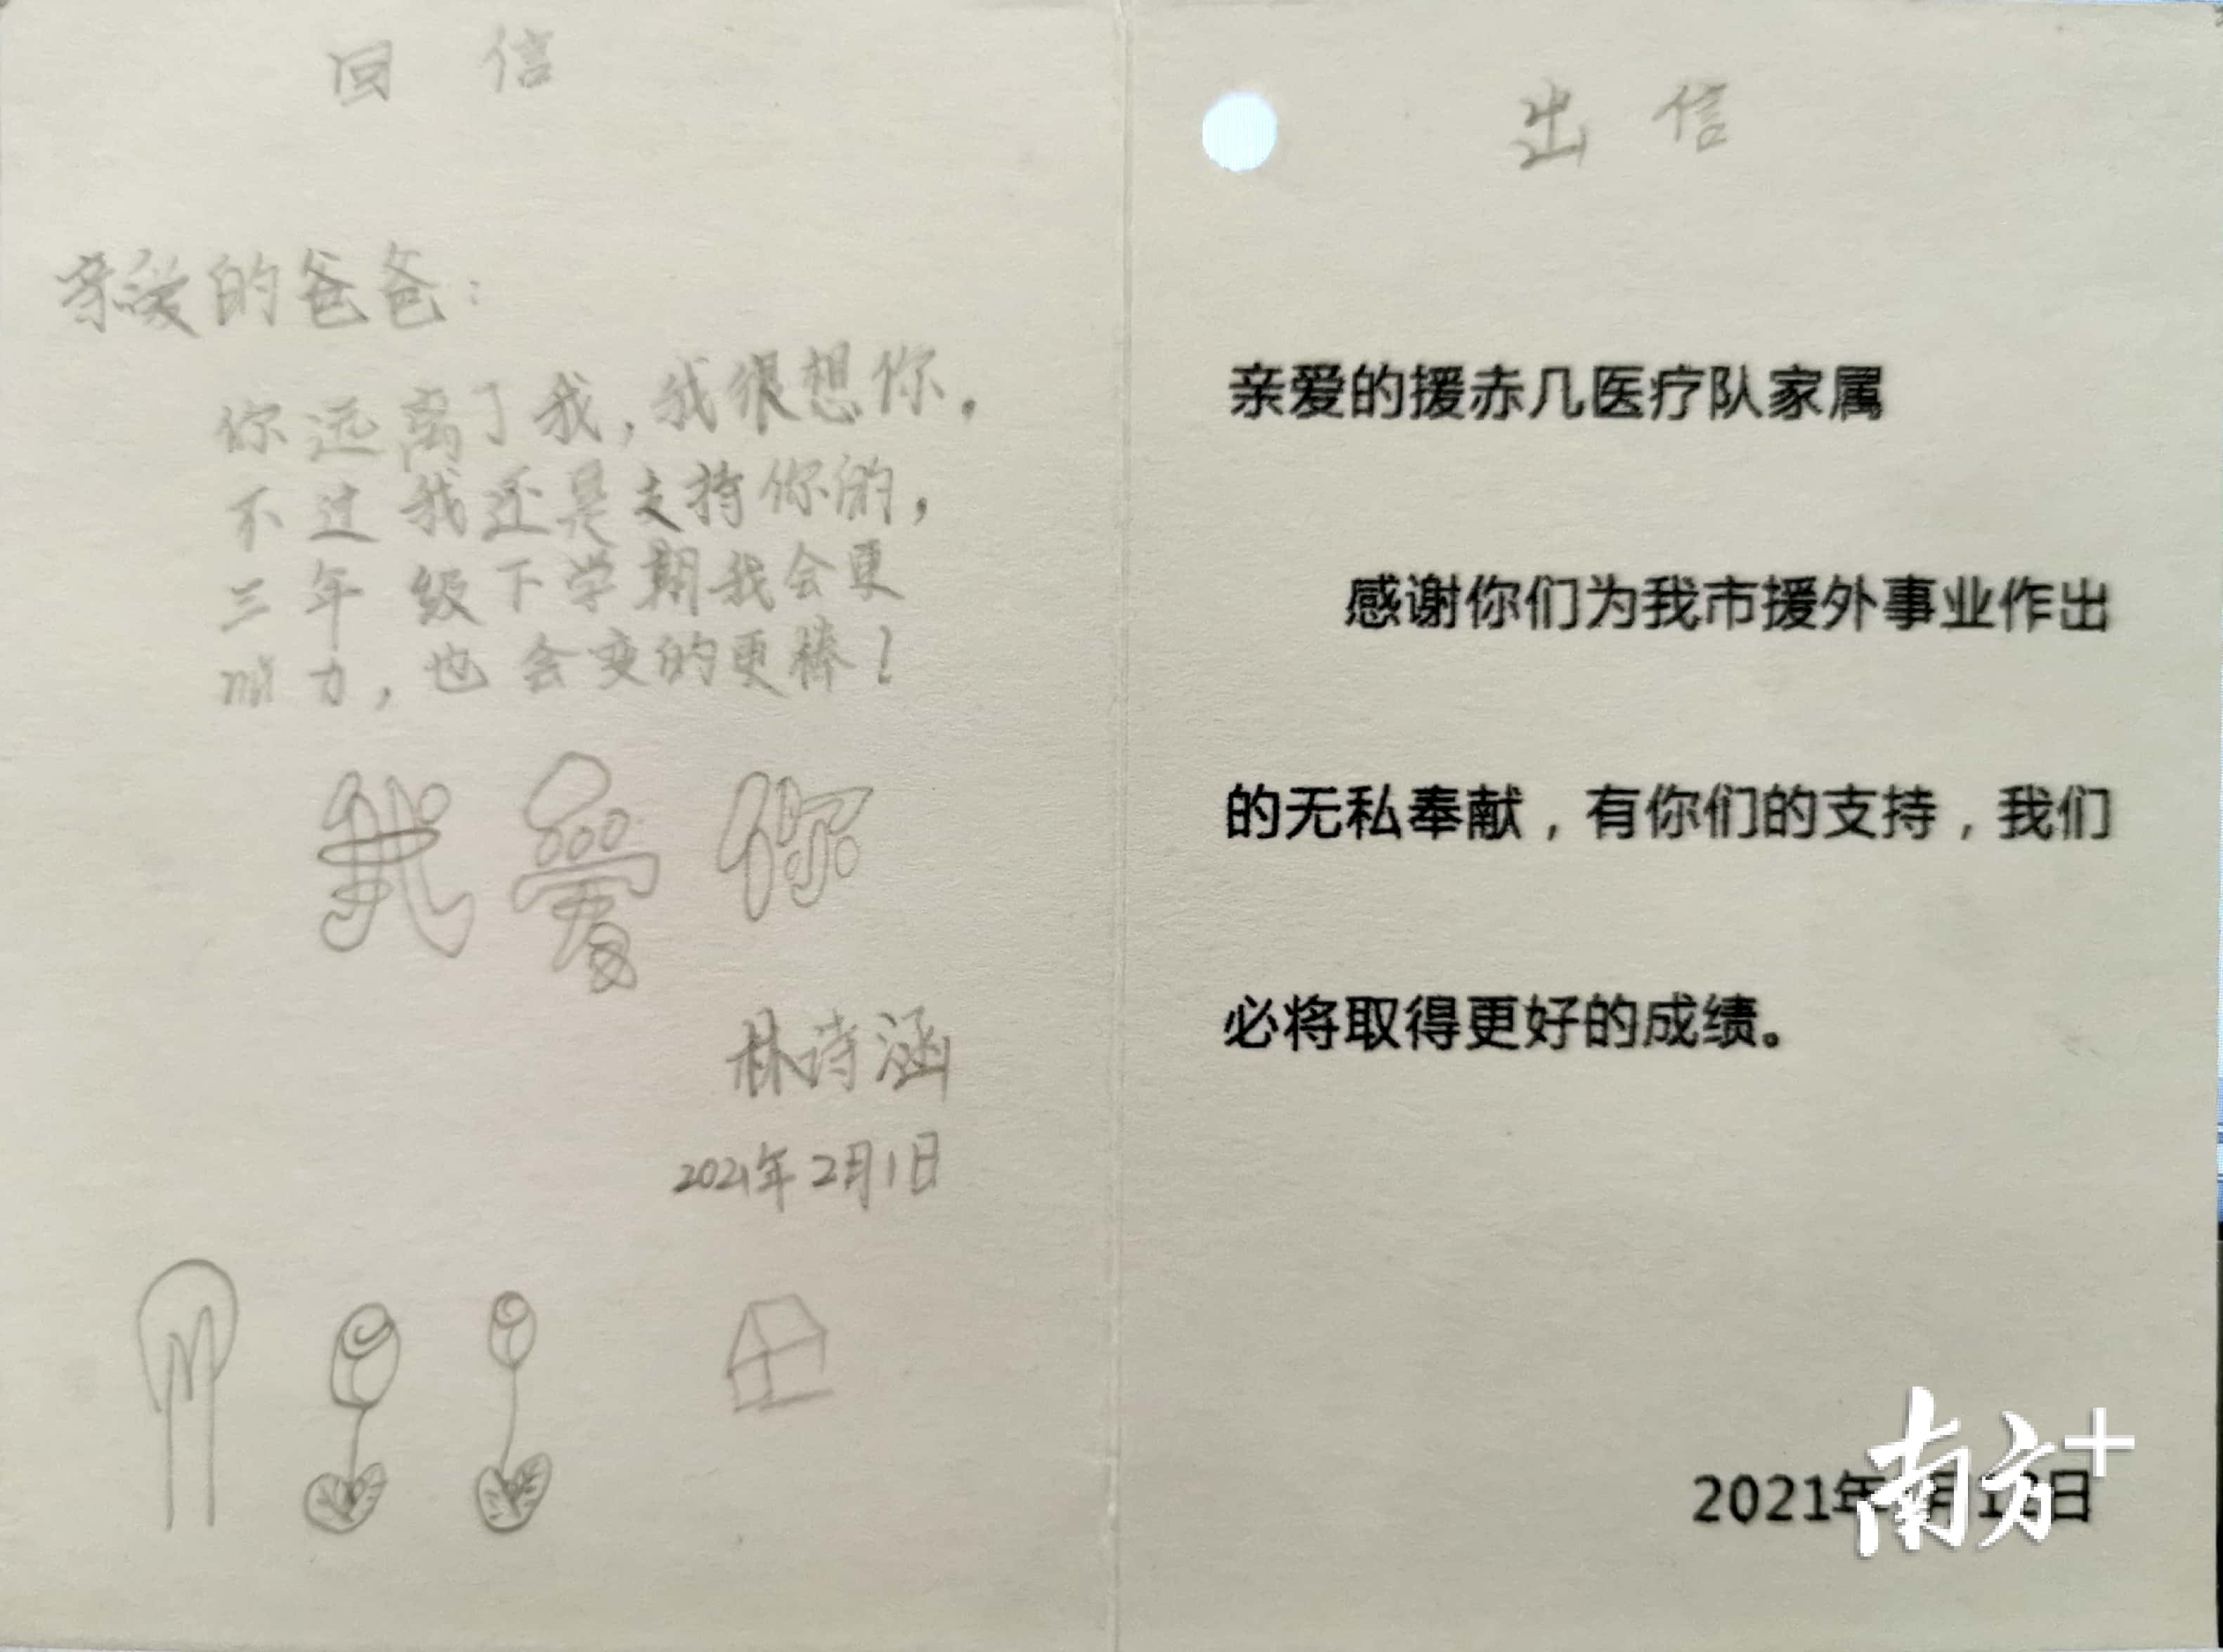 回 信
亲爱的爸爸：
你远离了我，我很想你。
不过我还是支持你的，
三年级下学期我会更
力，也会变的更棒！
我爱你
林诗涵
2021年2月1日
出 信
亲爱的援赤几医疗队家属
感谢你们为我市援外事业作出
的无私奉献，有你们的支持，我们
必将取得更好的成绩。
2021年 月 日
南方+